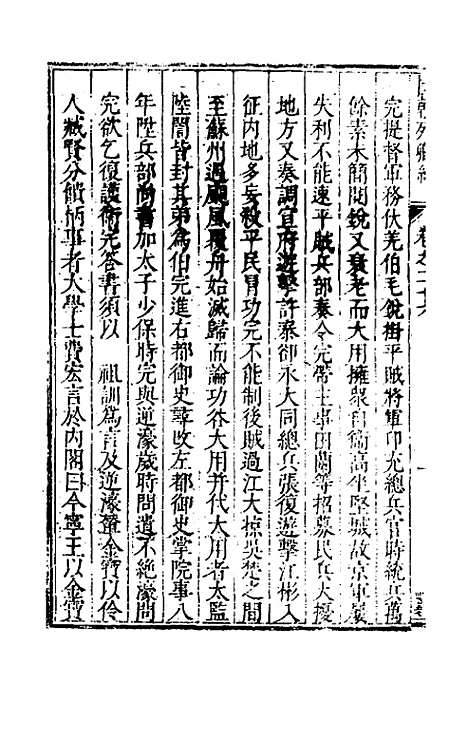 完提督軍務伏羌伯毛銳掛平賊將軍印充總兵官時統兵萬
餘素未簡閱銳又衰老而大用擁眾自衞高坐堅城故京軍屢
失利不能速平賊兵部奏令完帶主事田蘭等招募民兵大擾
地方又奏調宣府遊擊許泰卻永大同總兵張復遊擊江彬入
征內地多妄殺平民冒功完不能制後賊過江大掠吳楚之間
至蘇州遇颶風覆舟始滅歸而論功谷大用并代大用者太監
陸誾皆封其弟為伯完進右都御史尋改左都御史掌院事八
年陞兵部尚書加太子少保時完與逆濠歲時問遺不絕濠問
完欲乞復護衞完答書須以 祖訓為言及逆濠輦金寶以伶
人臧賢分饋柄事者大學士費宏言於內閣曰今寧王以金寶